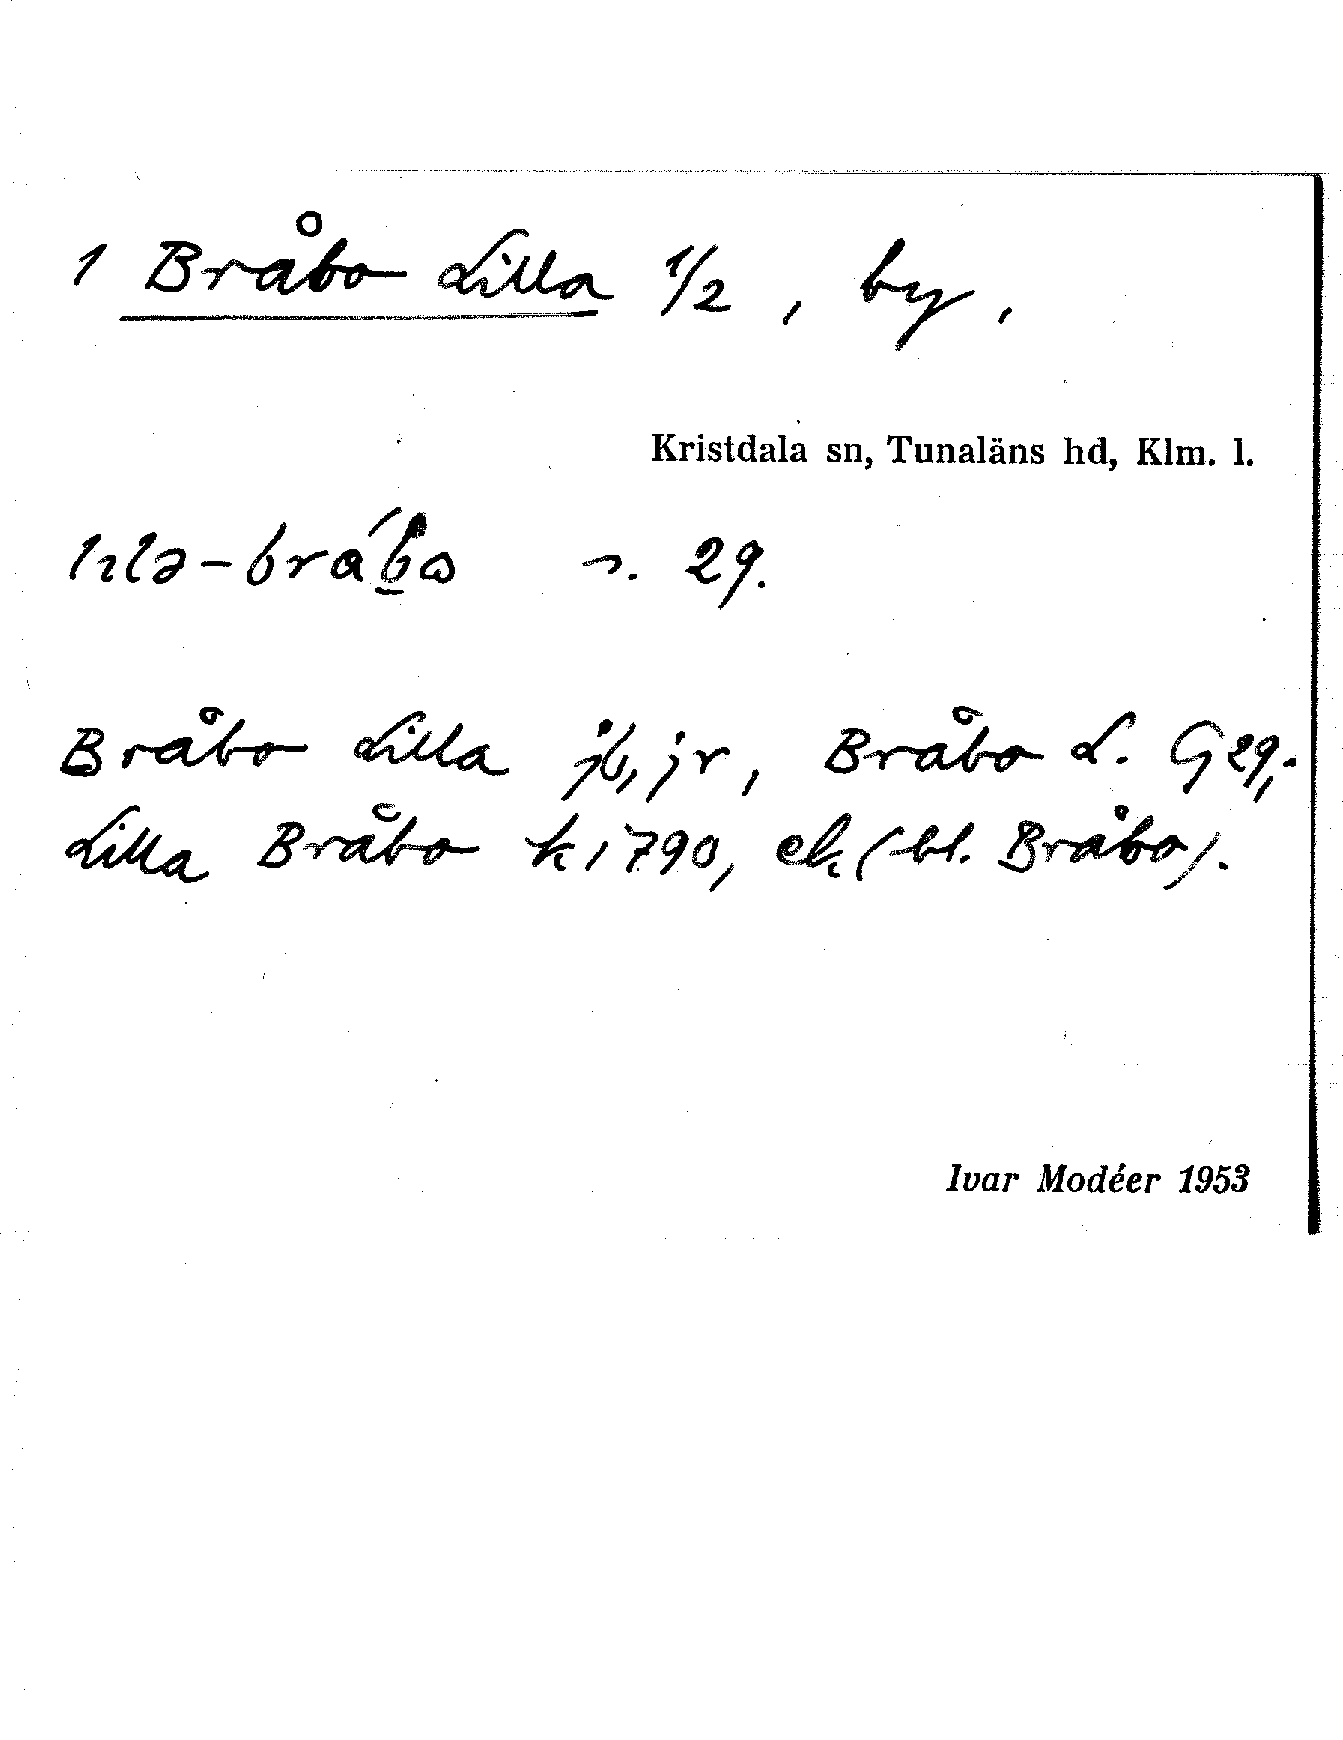 1 Bråbo Lilla 1/2, by,
Kristdala sn, Tunaläns hd, Klm. l.
29.
Bråbo Lilla jb, jr, Bråbo L. G 29,
Lilla Bråbo k 1790, ek (bl. Bråbo).
Ivar Modéer 1953